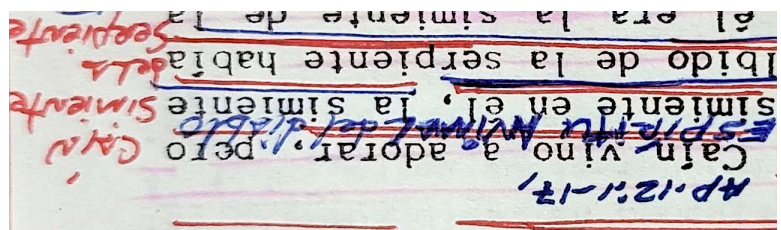 AP.12:1-17,
Caín vino a adorar, pero
CAIN
ESPIRITU ANIMAL del diablo
simiente en él, la simiente
SIMIENTE
bido de la serpiente había
DE LA
SERPIENTE
él era la simiente de la